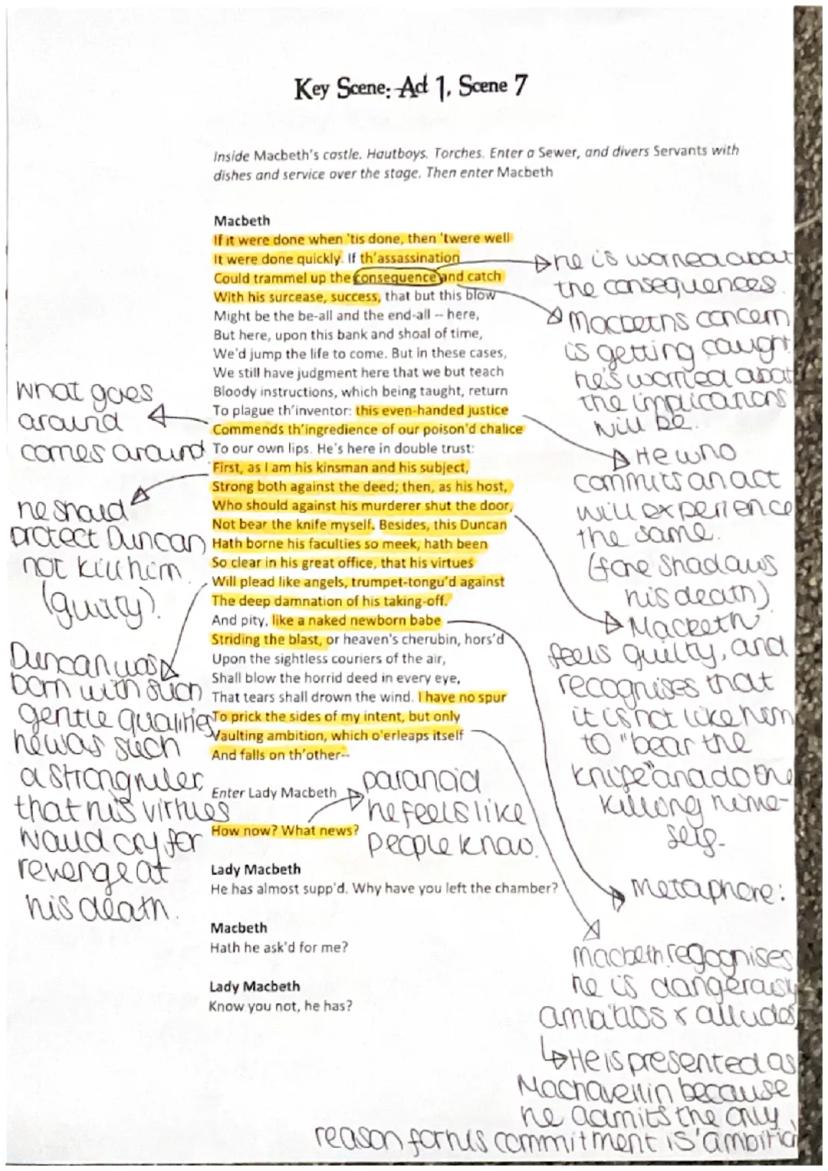 Key Scene: Act 1, Scene 7
Inside Macbeth's castle. Hautboys. Torches. Enter a Sewer, and divers Servants with
dishes and service over the stage. Then enter Macbeth
Macbeth
If it were done when 'tis done, then 'twere well
It were done quickly. If th'assassination
Could trammel up the consequence and catch
With his surcease, success, that but this blow
Might be the be-all and the end-all – here,
But here, upon this bank and shoal of time,
We'd jump the life to come. But in these cases,
We still have judgment here that we but teach
Bloody instructions, which being taught, return
To plague th'inventor: this even-handed justice
Commends th'ingredience of our poison'd chalice
To our own lips. He's here in double trust:
First, as I am his kinsman and his subject,
Strong both against the deed; then, as his host,
Who should against his murderer shut the door,
Not bear the knife myself. Besides, this Duncan
Hath borne his faculties so meek, hath been
So clear in his great office, that his virtues
Will plead like angels, trumpet-tongu'd against
The deep damnation of his taking-off.
And pity, like a naked newborn babe
Striding the blast, or heaven's cherubin, hors'd
Upon the sightless couriers of the air,
Shall blow the horrid deed in every eye,
That tears shall drown the wind. I have no spur
To prick the sides of my intent, but only
Vaulting ambition, which o'erleaps itself
And falls on th'other--
Enter Lady Macbeth
How now? What news?
Lady Macbeth
He has almost supp'd. Why have you left the chamber?
Macbeth
Hath he ask'd for me?
Lady Macbeth
Know you not, he has?
what goes
around
comes around
he should
protect Duncan
not kill him
(guilty).
Duncan was
born with such
gentle qualities
he was such
a strong ruler
that his virtues
would cry for
revenge at
his death.
he is worried about
the consequences.
Macbeths concern
is getting caught
he's worried about
the implications
will be.
He who
commits an act
will experience
the same.
(fore shadows
his death)
Macbeth
feels guilty, and
recognises that
it is not like him
to "bear the
knife" and do the
killing hime-
self.
paranoid
he feels like
people know.
metaphore:
Macbeth regognises
he is dangerously
ambitios & alludes
He is presented as
Machavellin because
he admits the only
reason for his commitment is 'ambitio